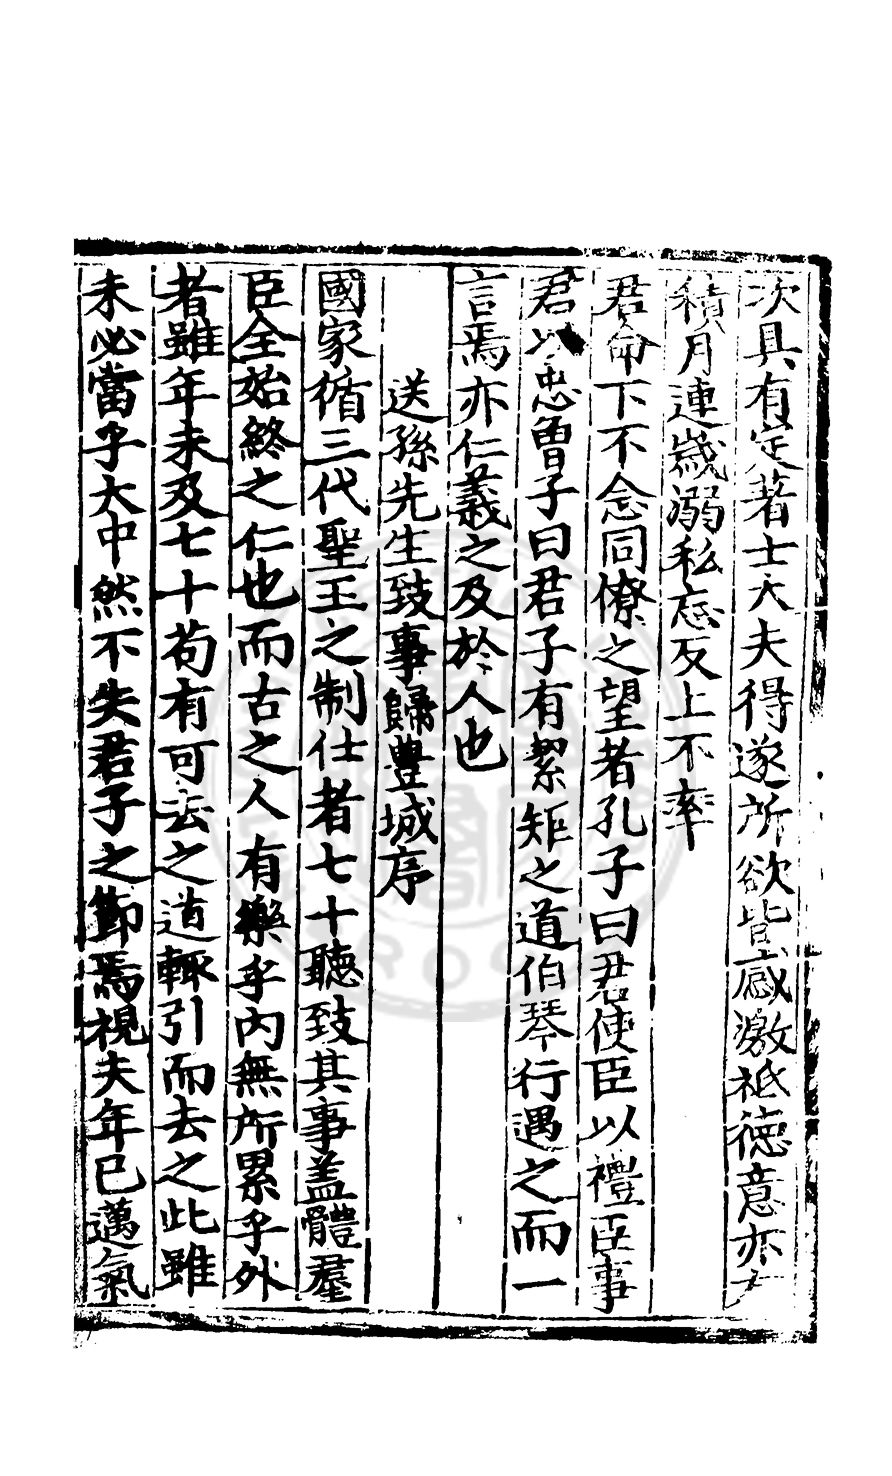 次具有定著士大夫得遂所欲皆感激祗德意亦有
積月連歲溺私忘反上不率
君命下不念同僚之望者孔子曰君使臣以禮臣事
君以忠曾子曰君子有絜矩之道伯琴行遇之而一
言焉亦仁義之及於人也
送孫先生致事歸豐城序
國家循三代聖王之制仕者七十聽致其事盖體羣
臣全始終之仁也而古之人有樂乎內無所累乎外
者雖年未及七十苟有可去之道輙引而去之此雖
未必當乎大中然不失君子之節焉視夫年已邁氣